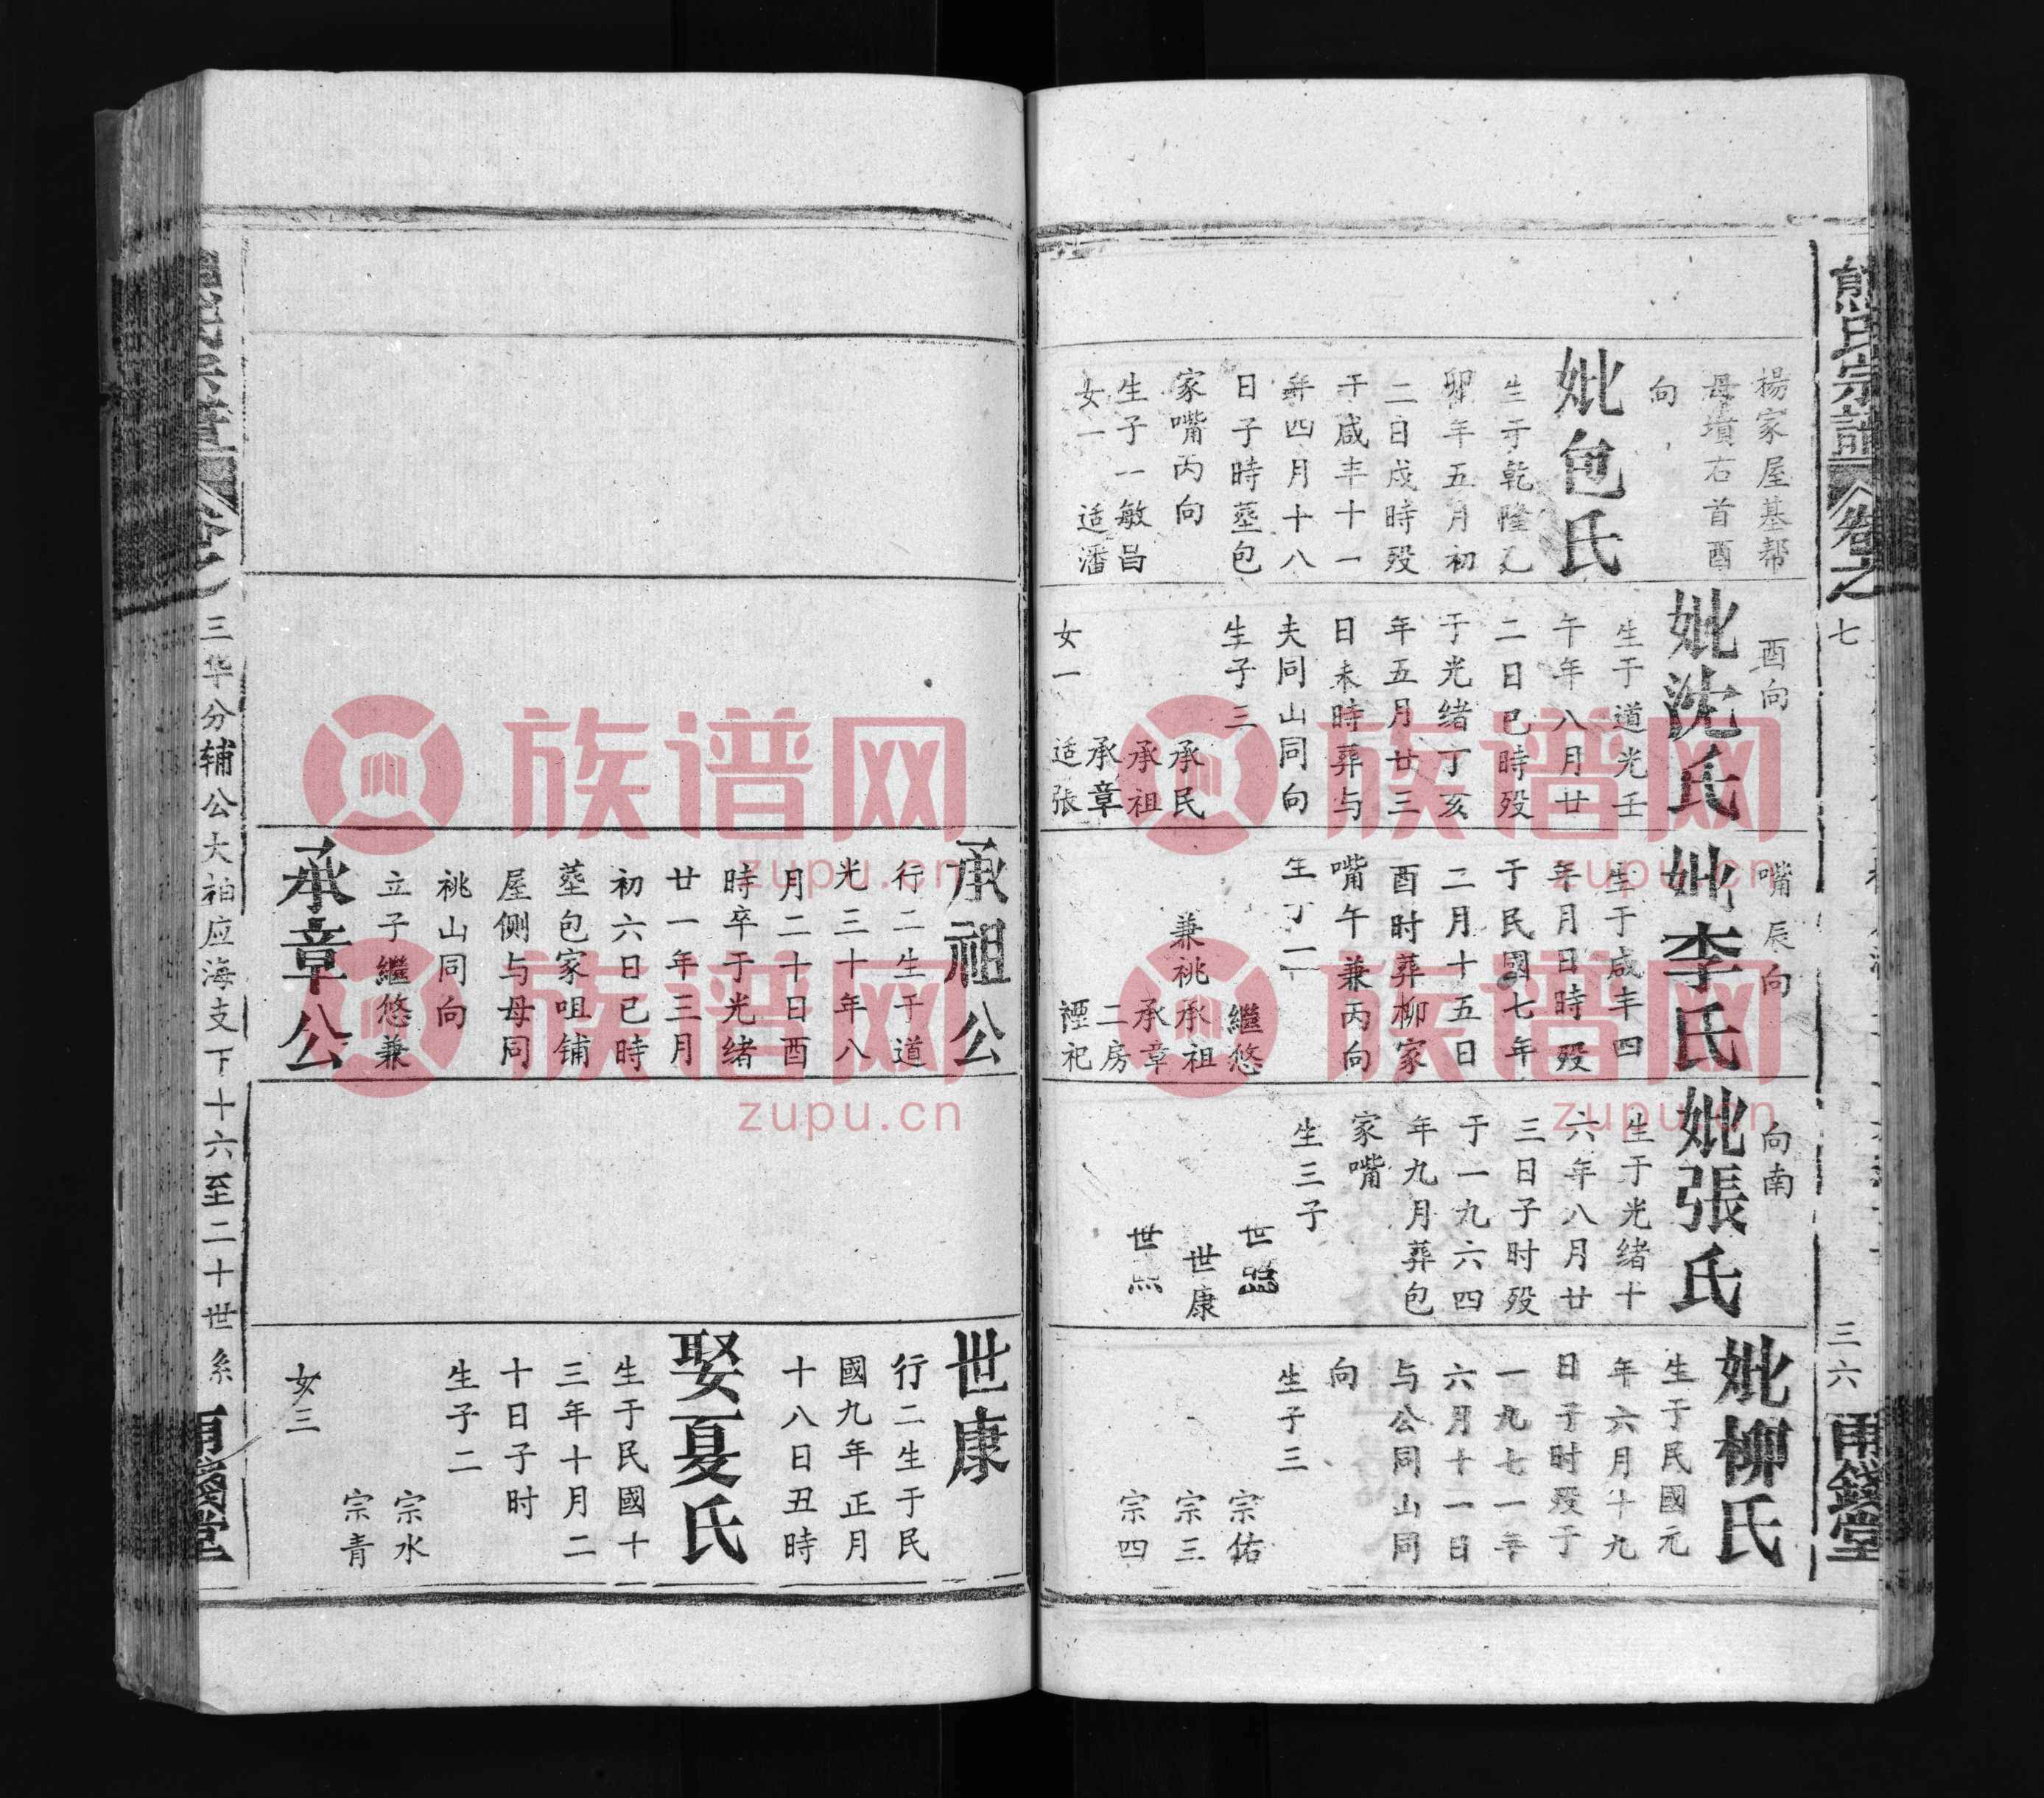 熊氏宗譜
卷之
七
三六
甬錢堂
楊家屋基帮
母墳右首酉
向
妣包氏
生于乾隆乙
卯年五月初
二日戌時殁
于咸丰十一
年四月十八
日子時塟包
家嘴丙向
生子一敏昌
女一 适潘
酉向
妣沈氏
生于道光壬
午年八月廿
二日已時殁
于光绪丁亥
年五月廿三
日未時葬与
夫同山同向
生子三
承民
承祖
承章
女一 适張
嘴辰向
妣李氏
生于咸丰四
年月日時殁
于民國七年
二月十五日
酉时葬柳家
嘴午兼丙向
生丁一
繼悠
兼祧承祖
承章
二房
禋祀
向南
妣張氏
生于光绪十
六年八月廿
三日子时殁
于一九六四
年九月葬包
家嘴
生三子
世
世康
世
妣柳氏
生于民國元
年六月十九
日子时殁于
一九七一年
六月十一日
与公同山同
向
生子三
宗佑
宗三
宗四
承祖公
行二生于道
光三十年八
月二十日酉
時卒于光绪
廿一年三月
初六日已時
塟包家咀铺
屋侧与母同
祧山同向
立子繼悠兼
承章公
世康
行二生于民
國九年正月
十八日丑時
娶夏氏
生于民國十
三年十月二
十日子时
生子二
宗水
宗青
女三
三华分辅公大柏应海支下十六至二十世系
族谱网
zupu.cn
族谱网
zupu.cn
族谱网
zupu.cn
族谱网
zupu.cn